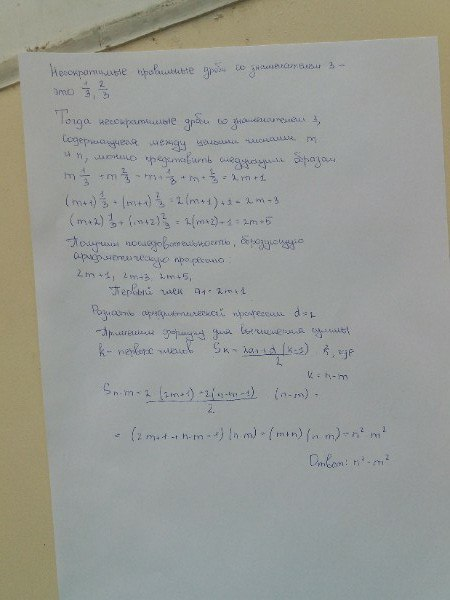 Несократимые правильные дроби со знаменателем 3 –
это 1/3, 2/3
Тогда несократимые дроби со знаменателем 3,
содержащиеся между целыми числами m
и n, можно представить следующим образом
m 1/3 + m 2/3 = m + 1/3 + m + 2/3 = 2m+1
(m+1) 1/3 + (m+1) 2/3 = 2(m+1)+1 = 2m+3
(m+2) 1/3 + (m+2) 2/3 = 2(m+2)+1 = 2m+5
Получим последовательность, образующую
арифметическую прогрессию.
2m+1, 2m+3, 2m+5,
Первый член a1 = 2m+1
Разность арифметической прогрессии d=2
Применим формулу для вычисления суммы
k – первых членов Sk = (2a1 + d(k-1))/2 k, где
k = n-m
Sn-m = (2(2m+1)+2(n-m-1))/2 (n-m) =
= (2m+1+n-m-1)(n-m) = (m+n)(n-m) = n²-m²
Ответ: n²-m²